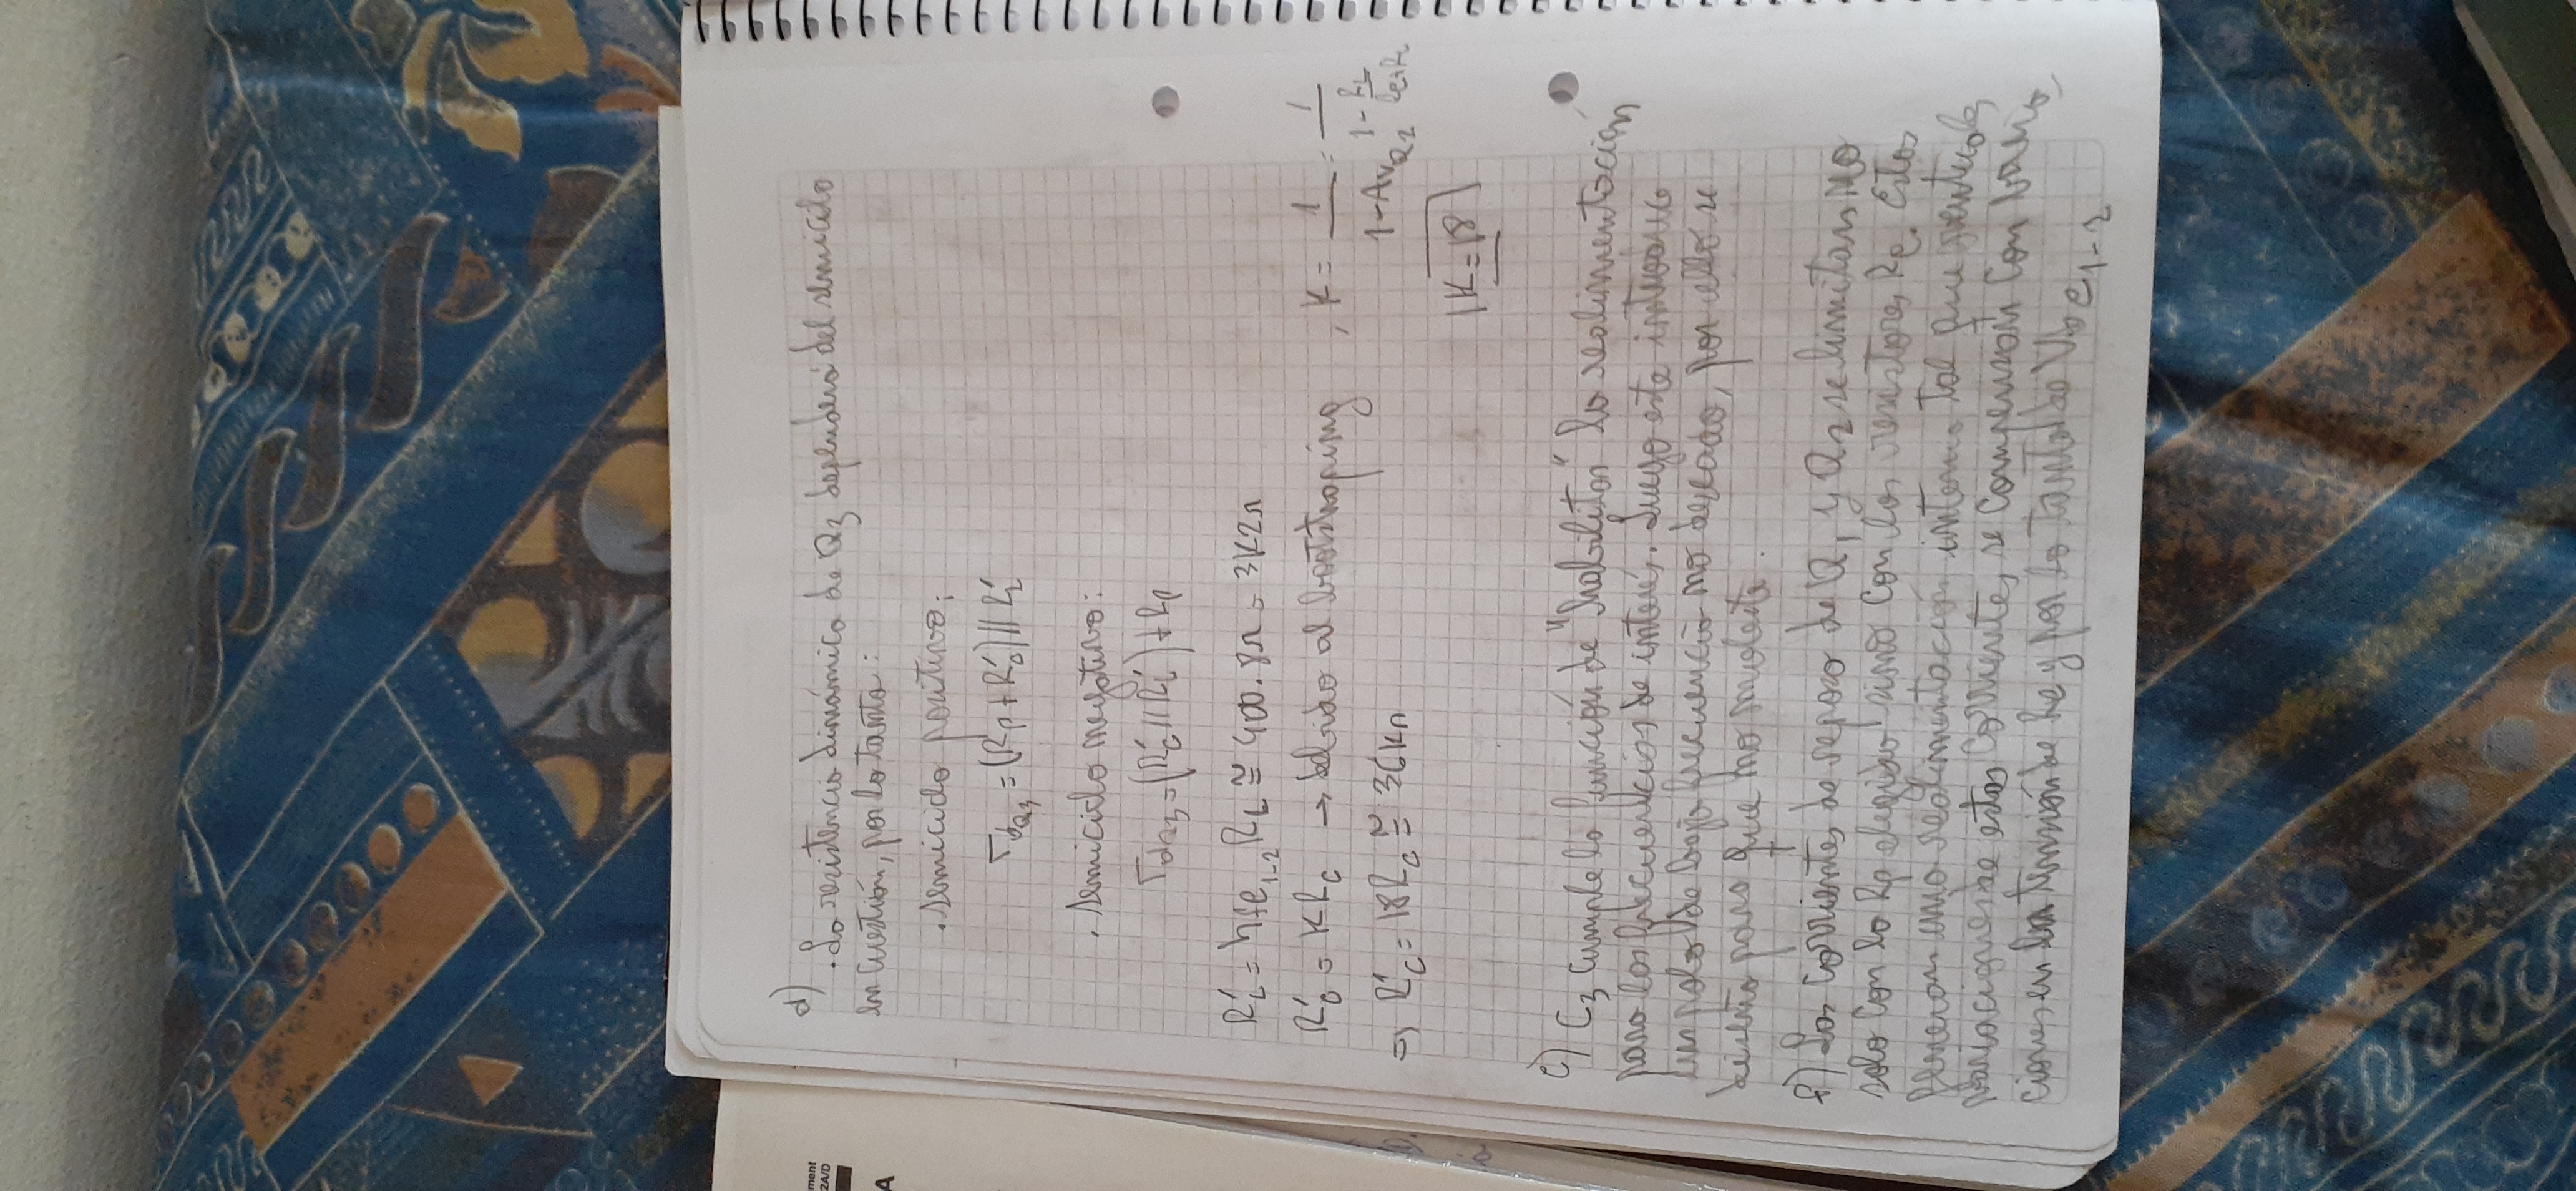 ment
2A/D
A
d)
. La resistencia dinámica de Q3 dependerá del semiciclo
en cuestión, por lo tanto:
. semiciclo positivo:
rdQ3 = (Rp + R'c) // R'L
. semiciclo negativo:
rdQ3 = (R'c // R'L) + Rp
R'L = hfe1-2 RL ≅ 400 . 8Ω = 3K2Ω
R'c = K Rc → debido al bootstraping , K = 1 / (1 - AvQ2) = 1 / (1 - RL / (Re+RL))
⇒ R'c = 18Rc ≅ 36KΩ
K = 18
e) C3 cumple la función de "habilitar" la realimentación
para las frecuencias de interés. Luego este introduce
un polo de baja frecuencia no deseado, por ello se
diseña para que no moleste.
f) Las corrientes de reposo de Q1 y Q2 se limitan no
solo con la Rp elegido sino con los resistores Re. Estos
generan una realimentación interna tal que eventuales
variaciones de estas corrientes se compensan con varia
ciones en la tensión de Re y por lo tanto de Vbe1-2